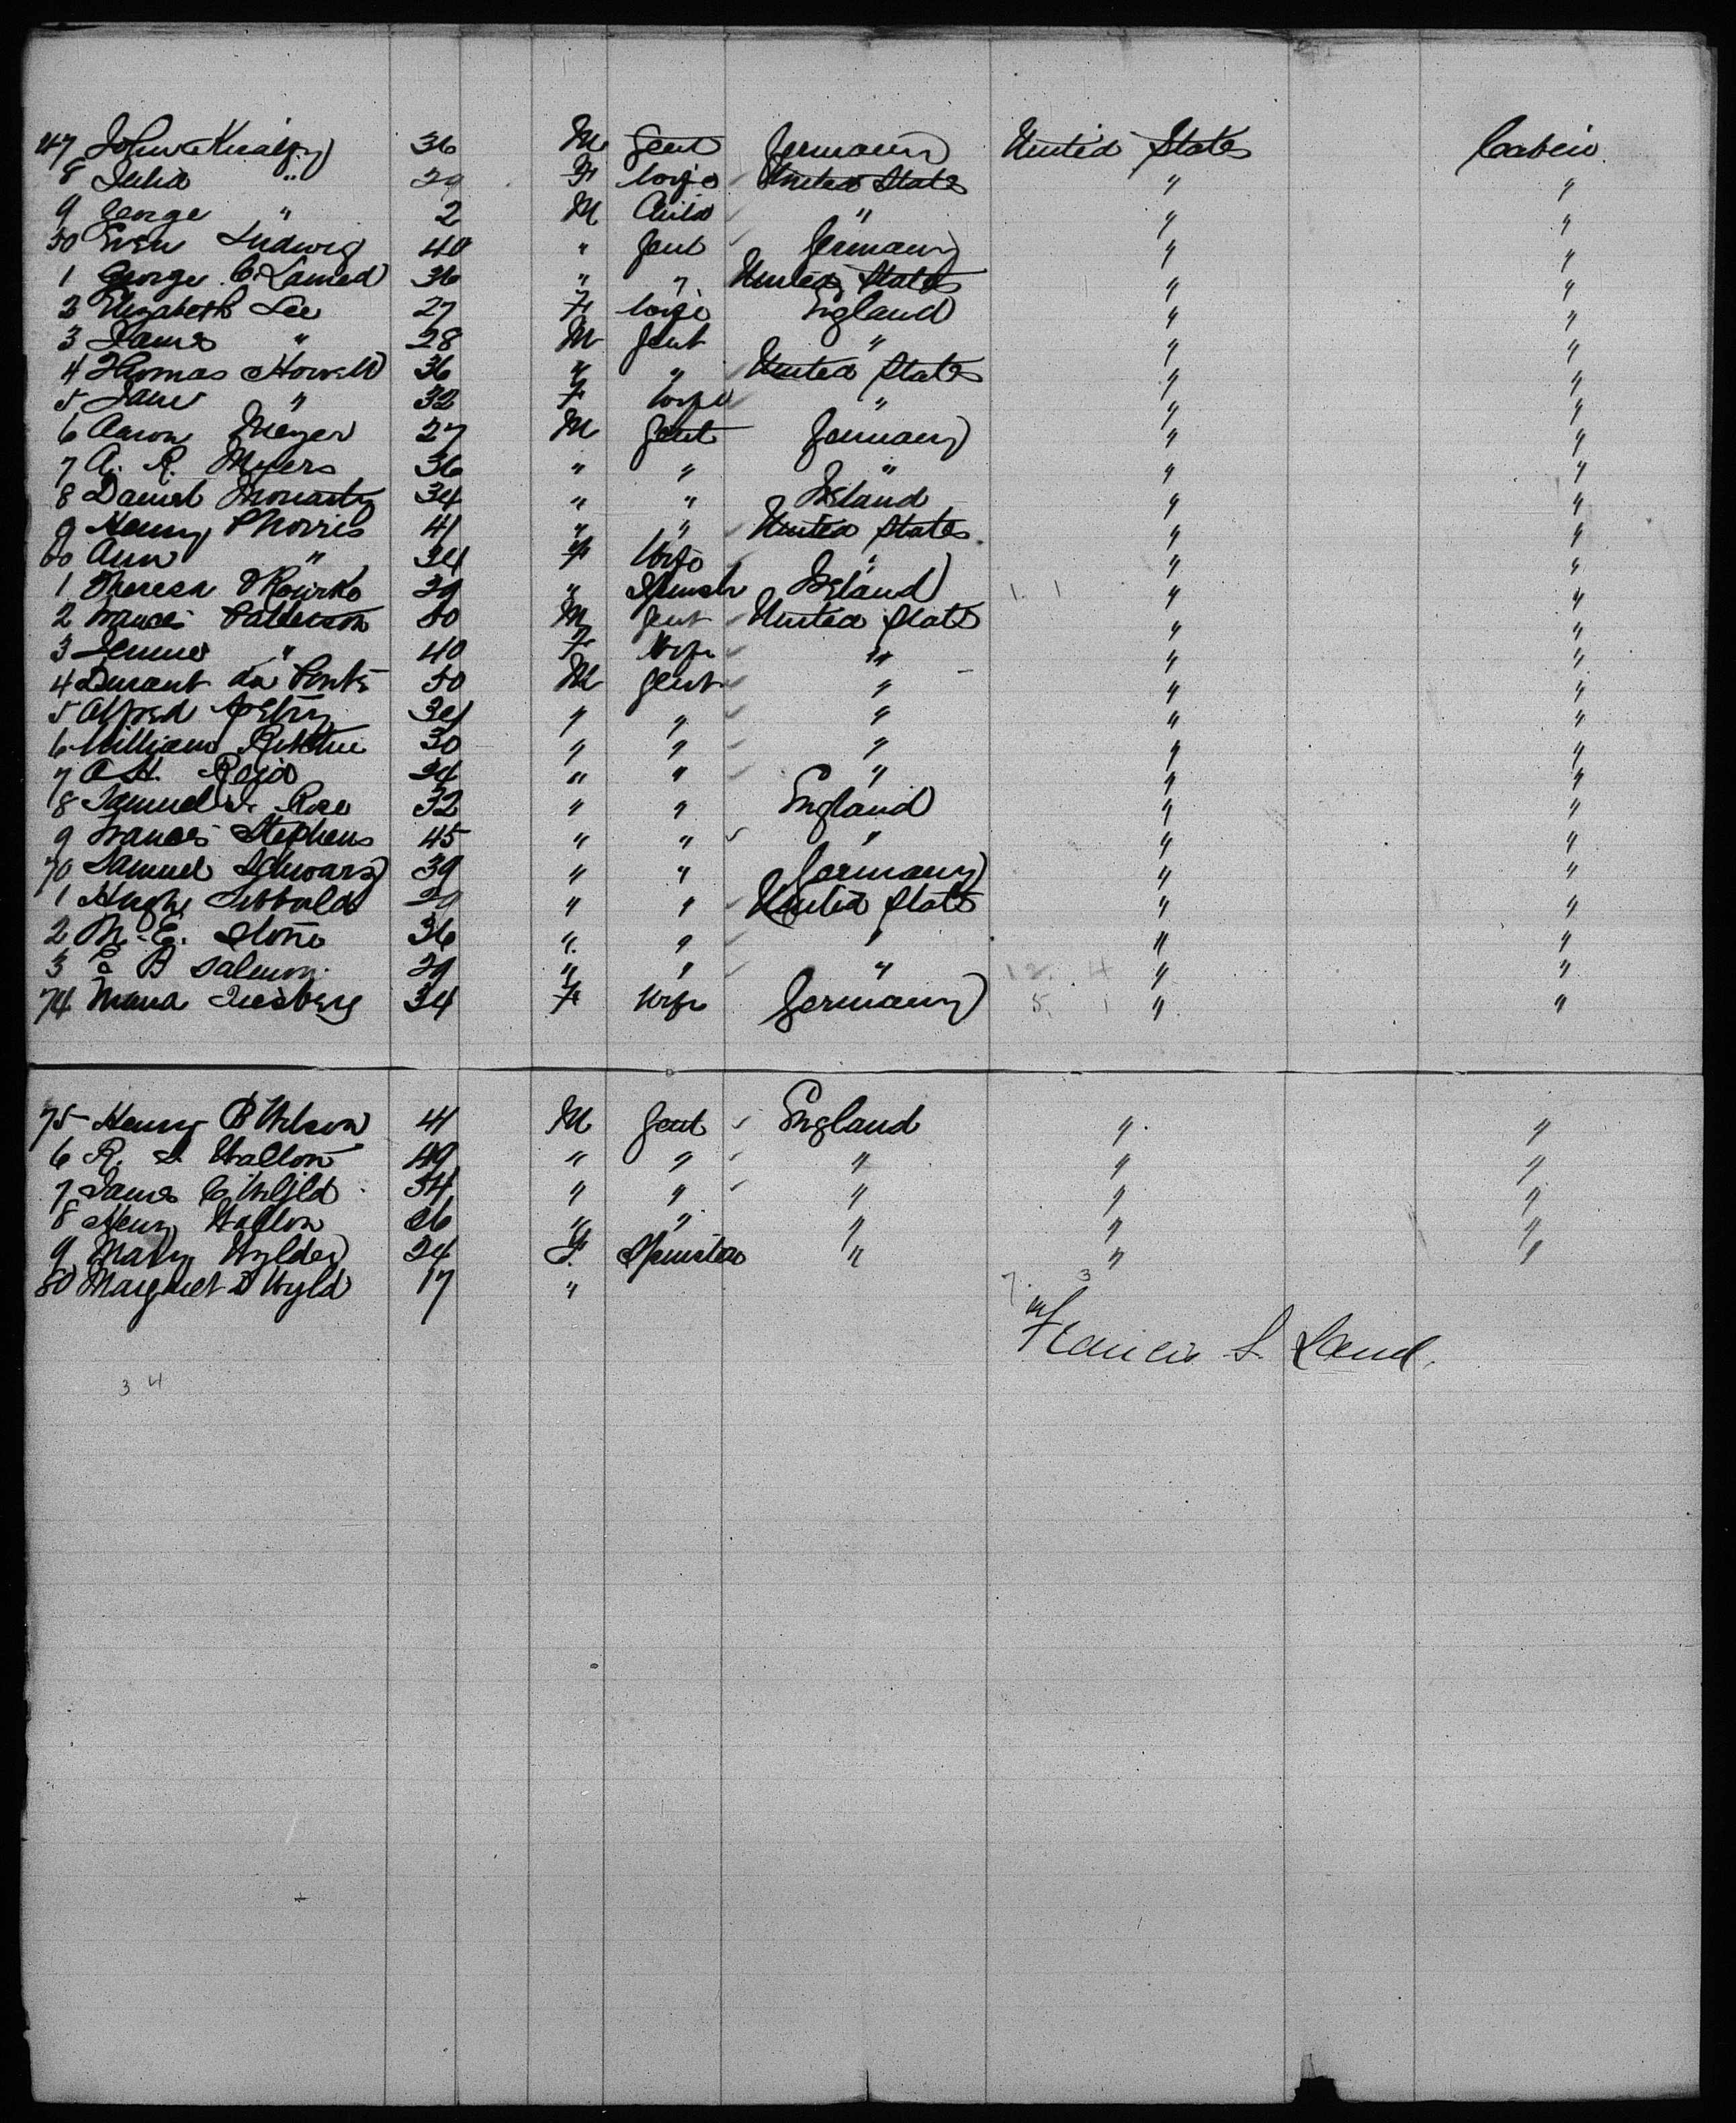 47 John Kraizy 36 M Gent Germany United States Cabin
8 Julia " 29 F Wife United States " "
9 George " 2 M Child " " "
50 Even Ludwig 40 " Gent Germany " "
1 George C. Lamed 36 " " United States " "
2 Elizabeth Lee 27 F Wife England " "
3 James " 28 M Gent " " "
4 Thomas Howell 36 " " United States " "
5 Jane " 32 F Wife " " "
6 Aaron Meyer 27 M Gent Germany " "
7 A. R. Myers 36 " " " " "
8 Daniel Moriarty 34 " " Ireland " "
9 Henry Morris 41 " " United States " "
60 Ann " 34 F Wife " " "
1 Theresa O'Rourke 29 " Spinstr Ireland 1. 1 " "
2 Frances Patterson 50 M Gent United States " "
3 Jennie " 40 F Wife " " "
4 Durant da Ponte 50 M Gent " " "
5 Alfred 34 " " " " "
6 William Ritchie 30 " " " " "
7 A H. Reid 24 " " " " "
8 Samuel Rose 32 " " England " "
9 Frances Stephens 45 " " " " "
70 Samuel Schwarz 39 " " Germany " "
1 Hugh Sibbald 29 " " United States " "
2 M. E. Stone 36 " " " " "
3 E B Salmon 29 " " " 12. 4 " "
74 Maria 34 F Wife Germany 5. 1 " "
75 Henry B Wilson 41 M Gent England " "
6 R. S. Walton 49 " " " " "
7 James C. Wyld 34 " " " " "
8 Henry Walton 26 " " " " "
9 Mary Wylder 24 F. Spinster " " "
80 Margaret D Wyld 17 " 7. 3
Francis S. Land.
3 4